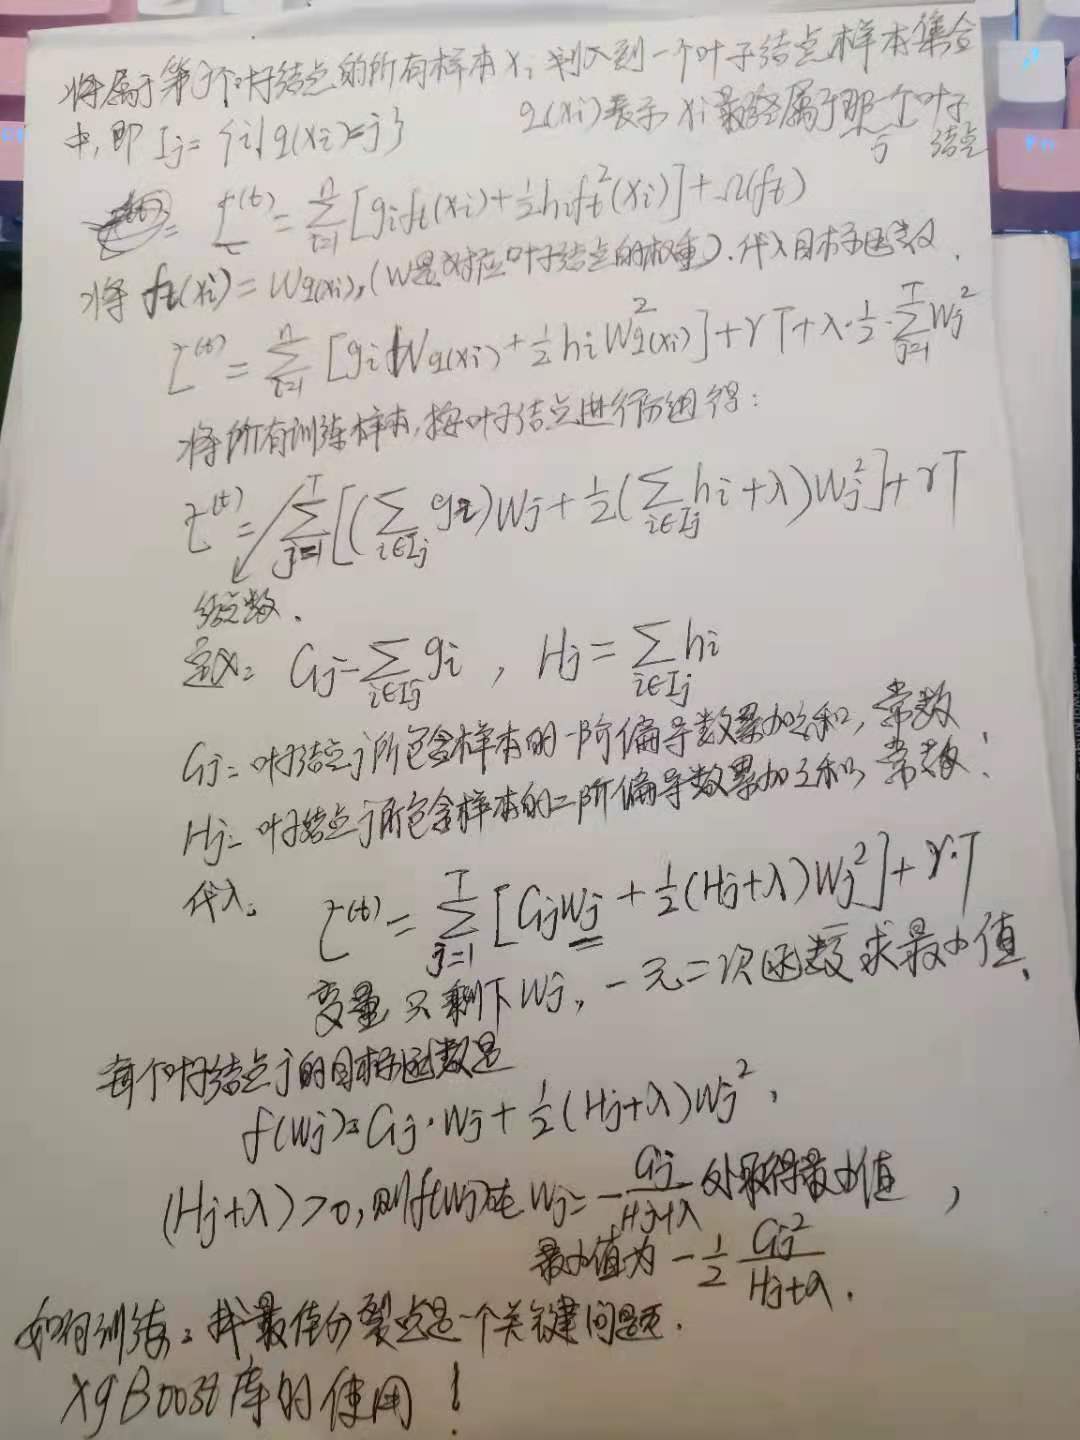 将属于第j个叶子结点的所有样本xi,划入到一个叶子结点样本集合
中,即 Ij={i|q(xi)=j} q(xi)表示xi最终属于那一个叶子
结点j
L^(t)=∑_{i=1}^{n}[gift(xi)+1/2hift^2(xi)]+Ω(ft)
将ft(xi)=Wq(xi),(W是对应叶子结点的权重).代入目标函数.
L^(t)=∑_{i=1}^{n}[giWq(xi)+1/2hiW^2q(xi)]+γT+λ·1/2·∑_{j=1}^{T}Wj^2
将所有训练样本,按叶子结点进行分组得:
L^(t)=∑_{j=1}^{T}[(∑_{i∈Ij}gi)Wj+1/2(∑_{i∈Ij}hi+λ)Wj^2]+γT
结点数.
定义: Gj=∑_{i∈Ij}gi , Hj=∑_{i∈Ij}hi
Gj:叶子结点j所包含样本的一阶偏导数累加之和,常数
Hj:叶子结点j所包含样本的二阶偏导数累加之和,常数!
代入: L^(t)=∑_{j=1}^{T}[GjWj+1/2(Hj+λ)Wj^2]+γ·T
变量只剩下Wj,一元二次函数求最小值.
每个叶子结点j的目标函数是
f(Wj)=Gj·Wj+1/2(Hj+λ)Wj^2.
(Hj+λ)>0,则f(Wj)在Wj=-Gj/(Hj+λ)处取得最小值,
最小值为-1/2 Gj^2/(Hj+λ).
如何训练:找最佳分裂点是一个关键问题.
XgBoost库的使用!